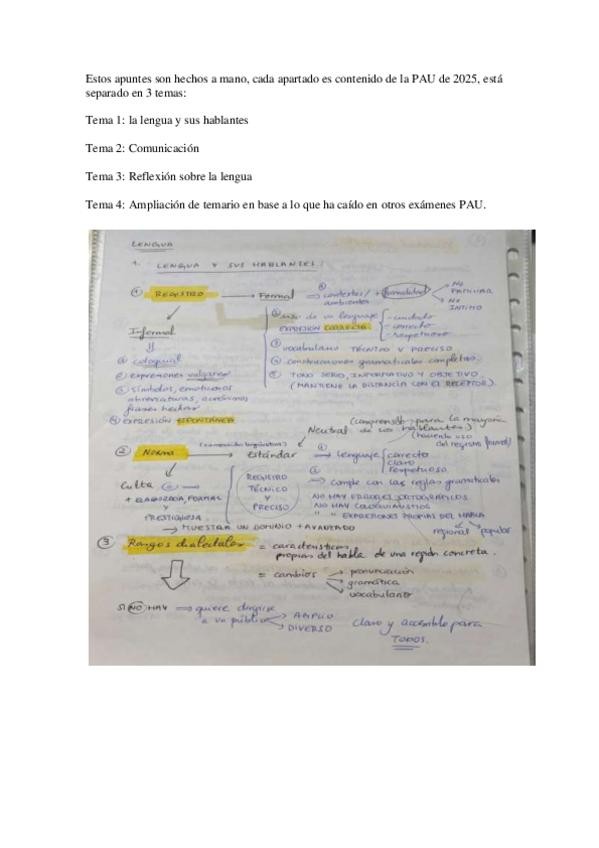 Estos apuntes son hechos a mano, cada apartado es contenido de la PAU de 2025, está
separado en 3 temas:
Tema 1: la lengua y sus hablantes
Tema 2: Comunicación
Tema 3: Reflexión sobre la lengua
Tema 4: Ampliación de temario en base a lo que ha caído en otros exámenes PAU.
LENGUA
1. LENGUA Y SUS HABLANTES
① REGISTRO → Formal ⇒ contextos/ambientes + formalidad
NO FAMILIAR
NO INTIMO
Informal
② uso de un lenguaje
- cuidado
- correcto
- respetuoso
EXPRESIÓN CORRECTA
③ vocabulario TÉCNICO Y PRECISO
④ construcciones gramaticales completas
⑤ TONO SERIO, INFORMATIVO Y OBJETIVO
(MANTIENE LA DISTANCIA CON EL RECEPTOR)
① coloquial
② expresiones vulgares
③ símbolos, emoticonos
abreviaturas, acrónimos
frases hechas
④ EXPRESIÓN ESPONTÁNEA
② Norma → estándar
(corrección lingüística)
Neutral (comprensible para la mayoría
de los hablantes)
(haciendo uso
del registro formal)
① → lenguaje
correcto
claro
respetuoso
② → cumple con las reglas gramaticales
NO HAY ERRORES ORTOGRÁFICOS
NO HAY COLOQUIALISMOS
" " EXPRESIONES PROPIAS DEL HABLA
regional popular
Culta
+ ELABORADA, FORMAL
Y
PRESTIGIOSA
REGISTRO
TÉCNICO
Y
PRECISO
→ MUESTRA UN DOMINIO + AVANZADO
③ Rasgos dialectales = características
propias del habla de una región concreta.
= cambios
pronunciación
gramática
vocabulario
SI NO HAY ⇒ quiere dirigirse
a un público
AMPLIO
DIVERSO
claro y accesible para
TODOS.